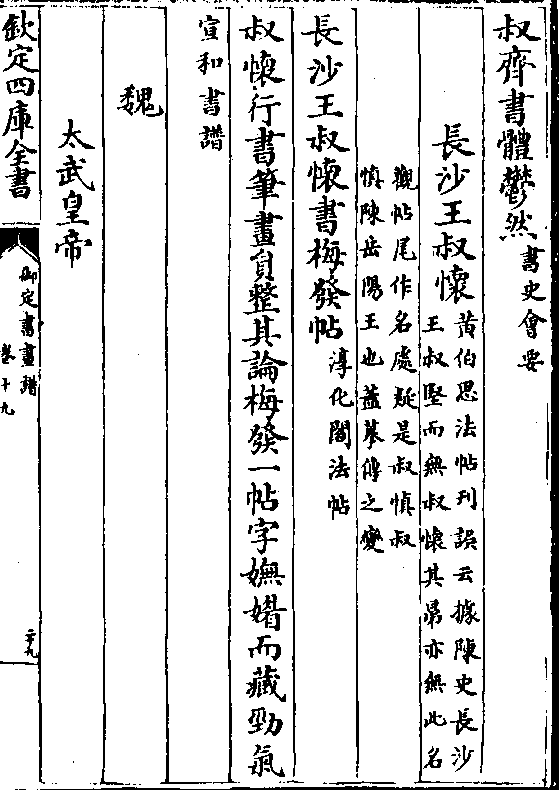 叔齊書體鬱然書史會要
長沙王叔懷黄伯思法帖刋誤云據陳史長沙
王叔堅而無叔懷其弟亦無此名
觀帖尾作名處疑是叔慎叔
慎陳岳陽王也蓋摹傳之變
長沙王叔懷書梅發帖淳化閣法帖
叔懷行書筆畫負整其論梅發一帖字嫵媚而藏勁氣
宣和書譜
魏
太武皇帝
欽定四庫全書
御定書畫譜
卷十九
二十九